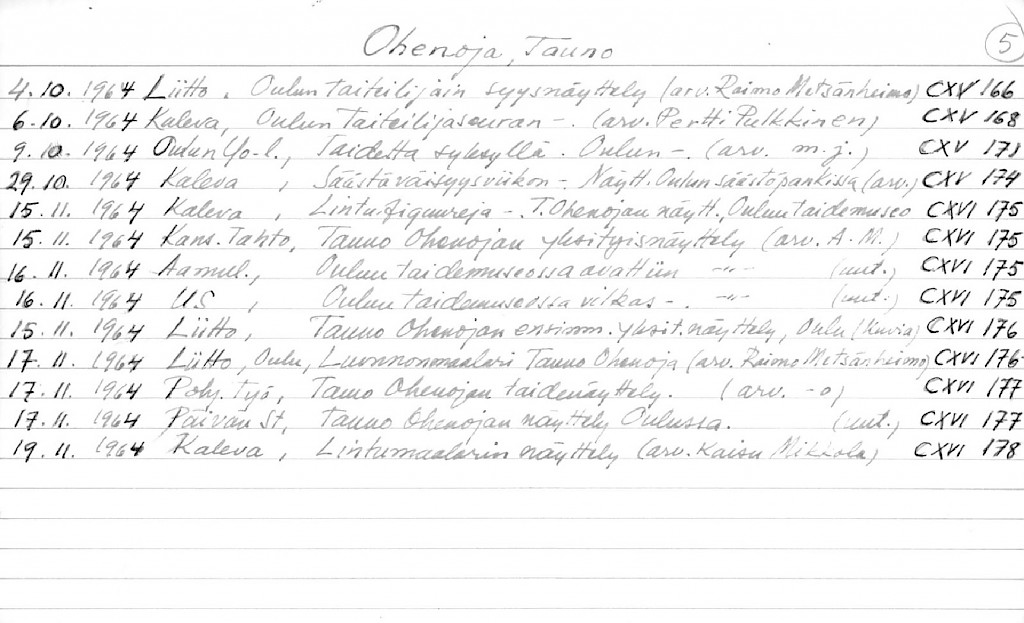 Ohenoja, Tauno
5
4.10. 1964 Liitto, Oulun taiteilijain syysnäyttely (arv. Raimo Metsänheimo) CXV 166
6.10. 1964 Kaleva, Oulun Taiteilijaseuran -. (arv. Pertti Pulkkinen) CXV 168
9.10. 1964 Oulun Yo-l., Taidetta syksyllä. Oulun -. (arv. m.j.) CXV 171
29.10. 1964 Kaleva, Säästäväisyysviikon -. Näytt. Oulun säästöpankissa (arv.) CXV 174
15.11. 1964 Kaleva, Lintufiguureja -. T. Ohenojan näytt., Oulun taidemuseo CXVI 175
15.11. 1964 Kans. Tahto, Tauno Ohenojan yksityisnäyttely (arv. A.M.) CXVI 175
16.11. 1964 Aamul., Oulun taidemuseossa avattiin -"- (uut.) CXVI 175
16.11. 1964 US, Oulun taidemuseossa vilkas -. -"- (uut.) CXVI 175
15.11. 1964 Liitto, Tauno Ohenojan ensimm. yksit. näyttely, Oulu (kuvia) CXVI 176
17.11. 1964 Liitto, Oulu, Luonnonmaalari Tauno Ohenoja (arv. Raimo Metsänheimo) CXVI 176
17.11. 1964 Pohj. Työ, Tauno Ohenojan taidenäyttely. (arv. -o) CXVI 177
17.11. 1964 Päivän St, Tauno Ohenojan näyttely Oulussa. (uut.) CXVI 177
19.11. 1964 Kaleva, Lintumaalarin näyttely (arv. Kaisu Mikkola) CXVI 178